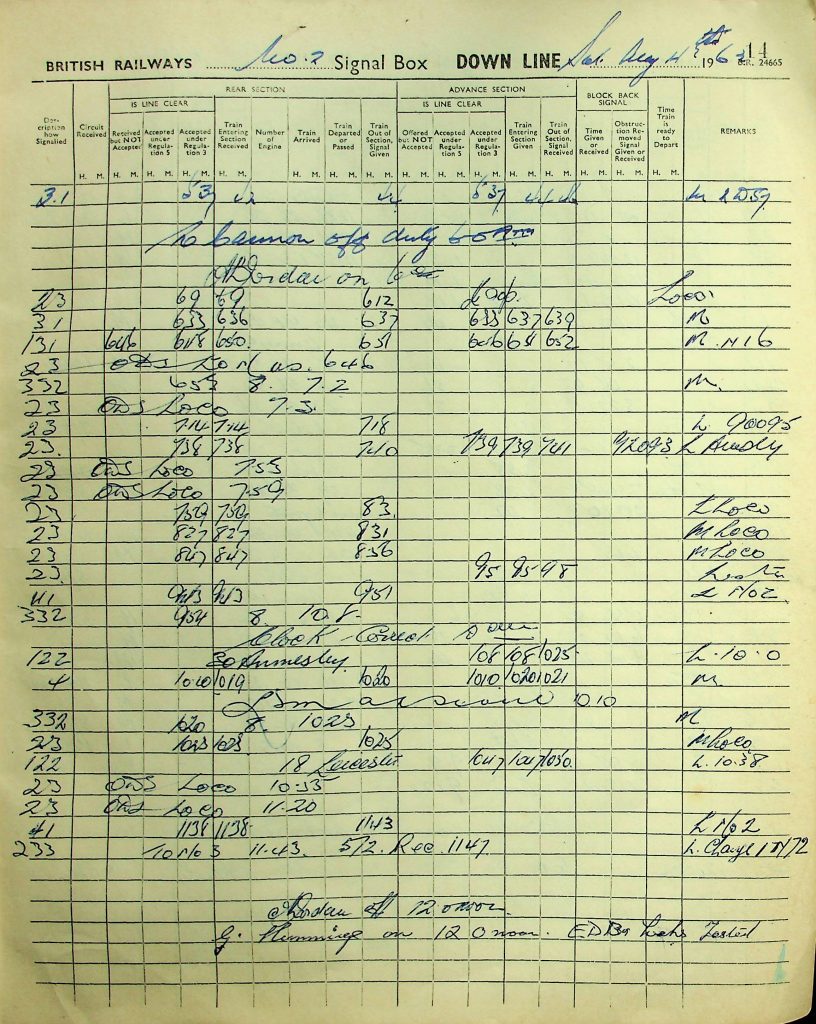 BRITISH RAILWAYS No. 2 Signal Box DOWN LINE Sat. Aug 4th 1962 14
B.R. 24665
REAR SECTION ADVANCE SECTION BLOCK BACK SIGNAL
IS LINE CLEAR IS LINE CLEAR
Description how Signalled Circuit Received Received but NOT Accepted Accepted under Regulation 5 Accepted under Regulation 3 Train Entering Section Received Number of Engine Train Arrived Train Departed or Passed Train Out of Section, Signal Given Offered but NOT Accepted Accepted under Regulation 5 Accepted under Regulation 3 Train Entering Section Given Train Out of Section, Signal Received Time Given or Received Obstruction Removed Signal Given or Received Time Train is ready to Depart REMARKS
H. M. H. M. H. M. H. M. H. M. H. M. H. M. H. M. H. M. H. M. H. M. H. M. H. M. H. M. H. M. H. M.
3.1 537 42 44 537 44 46
Cannon off duty
Jordan on
23 69 69 612 Loco
31 633 636 637 633 637 639 M
131 646 648 650 651 646 651 652 M. N16
23 646
332 653 8. 7.2 M.
23 ODS Loco 7.3.
23 714 714 718 L 90095
23. 738 738 740 739 739 741 92093 L
23 ODS Loco 7.53
23 ODS Loco 7.59
23 759 759 83. L Loco
23 827 827 831 M Loco
23 847 847 856 M Loco
23 95 95 98
41 943 943 951 L No 2
332 954 8. 10.8.
Clock Correct
122 30 Annesley. 108 108 1025 L. 10.0
4 1010 1019 1020 1010 1020 1021 M
1010
332 1020 8. 1023 M
23 1023 1023 1025 M Loco
122 18 Leicester 1047 1047 1050 L. 10.38
23 ODS Loco 10.35
23 ODS Loco 11.20
41 1138 1138 1143 L No 2
233 To No 3 11.43. 5/2. Rec. 1147.
Jordan off 12 0 noon.
G. Flemming on 12 0 noon. Tested